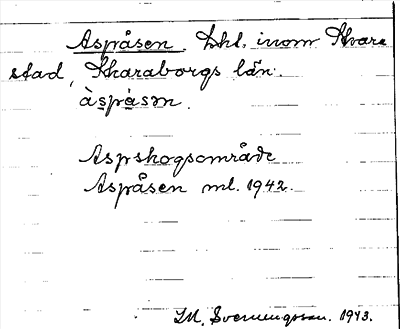 Aspåsen. Lht. inom Skara
stad, Skaraborgs län.
àspåsən.
Aspskogsområde
Aspåsen ml. 1942.
I.M. Svenungsson. 1943.